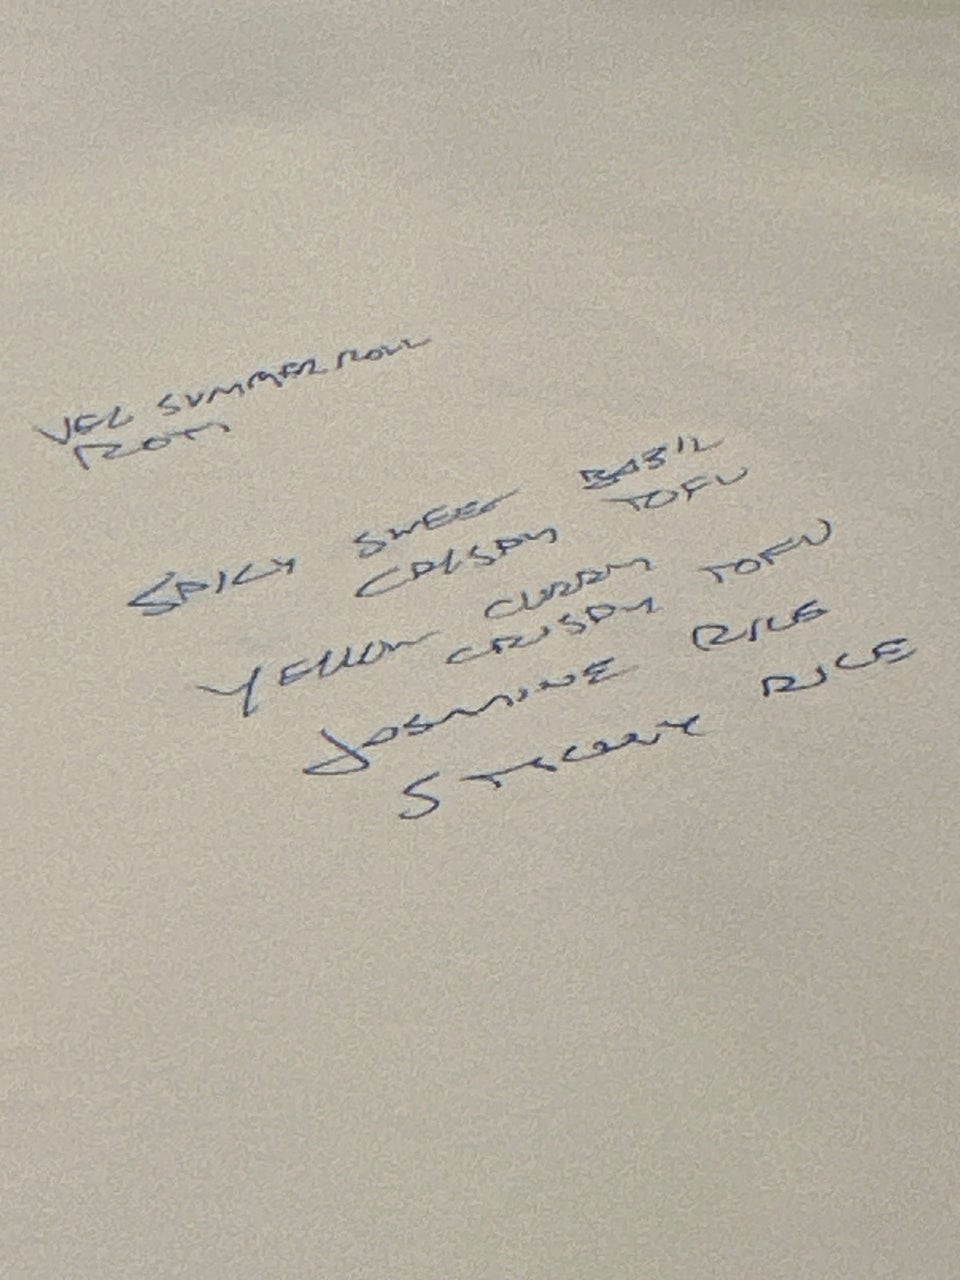 VEG SUMMER ROLL
ROTI
SPICY SWEET BASIL
CRISPY TOFU
YELLOW CURRY
CRISPY TOFU
JASMINE RICE
STICKY RICE